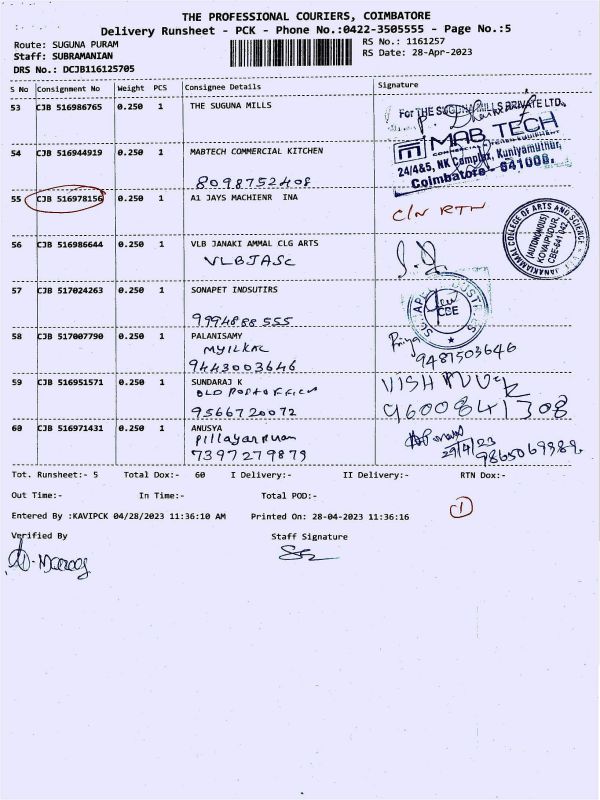 THE PROFESSIONAL COURIERS, COIMBATORE
Delivery Runsheet - PCK - Phone No.:0422-3505555 - Page No.:5
Route: SUGUNA PURAM
RS No.: 1161257
Staff: SUBRAMANIAN
RS Date: 28-Apr-2023
DRS No.: DCJB116125705
S No Consignment No Weight PCS Consignee Details Signature
53 CJB 516986765 0.250 1 THE SUGUNA MILLS
For THE SUGUNA MILLS PRIVATE LTD.
54 CJB 516944919 0.250 1 MABTECH COMMERCIAL KITCHEN
MAB TECH
24/4&5, NK Complex, Kuniyamuthur,
Coimbatore - 641008.
8098752408
55 CJB 516978156 0.250 1 A1 JAYS MACHIENR INA
C/N RTN
56 CJB 516986644 0.250 1 VLB JANAKI AMMAL CLG ARTS
VLBJASC
JANAKIAMMAL COLLEGE OF ARTS AND SCIENCE
(AUTONOMOUS)
KOVAIPUDUR,
CBE-641 042.
57 CJB 517024263 0.250 1 SONAPET INDSUTIRS
CBE
9994888555
58 CJB 517007790 0.250 1 PALANISAMY
Priya
9487503646
9443003646
59 CJB 516951571 0.250 1 SUNDARAJ K
OLD POSTOFFICE
9600841308
9566720072
60 CJB 516971431 0.250 1 ANUSYA
29/4/23
7397279879
Tot. Runsheet:- 5 Total Dox:- 60 I Delivery:- II Delivery:- RTN Dox:-
Out Time:- In Time:- Total POD:-
Entered By :KAVIPCK 04/28/2023 11:36:10 AM Printed On: 28-04-2023 11:36:16
1
Verified By Staff Signature